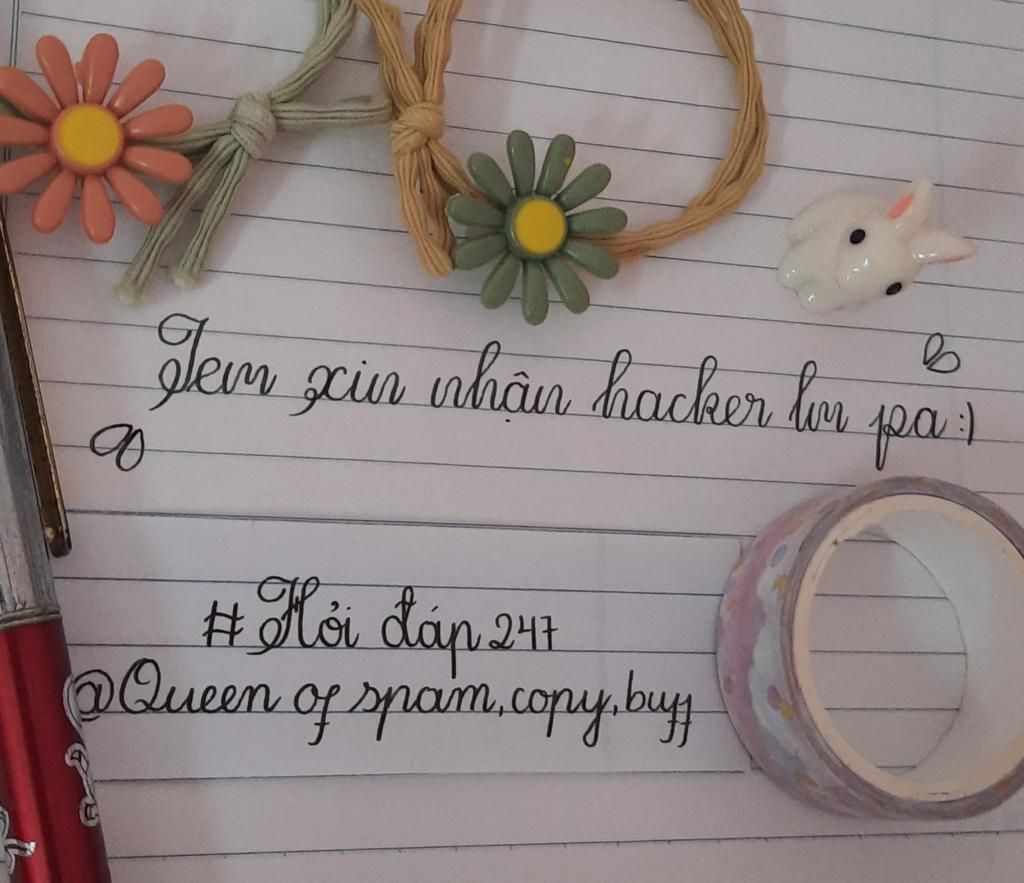 Jem xin nhận hacker lm pa:)
#Hỏi đáp 247
@Queen of spam, copy, buff